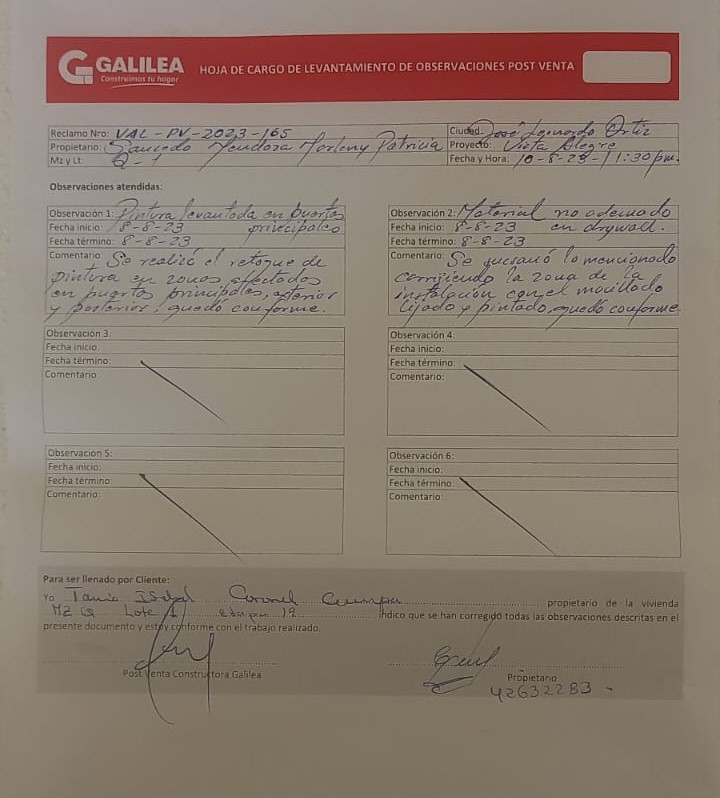 GALILEA
Construimos tu hogar
HOJA DE CARGO DE LEVANTAMIENTO DE OBSERVACIONES POST VENTA
Reclamo Nro: VAL-PV-2023-165
Ciudad: José Leonardo Ortiz
Propietario: Saucedo Mendoza Marleny Patricia
Proyecto: Vista Alegre
Mz y Lt: Q-1
Fecha y Hora: 10-8-23-11:30pm.
Observaciones atendidas:
Observación 1: Pintura levantada en puertas
Fecha inicio: 8-8-23 principales
Fecha término: 8-8-23
Comentario: Se realizó el retoque de
pintura en zonas afectadas
en puertas principales, anterior
y posterior, quedó conforme.
Observación 2: Material no adecuado
Fecha inicio: 8-8-23 en drywall.
Fecha término: 8-8-23
Comentario: Se lo mencionado
corrigiendo la zona de la
instalación con el macillado
lijado y pintado, quedó conforme.
Observación 3:
Fecha inicio:
Fecha término:
Comentario:
Observación 4:
Fecha inicio:
Fecha término:
Comentario:
Observación 5:
Fecha inicio:
Fecha término:
Comentario:
Observación 6:
Fecha inicio:
Fecha término:
Comentario:
Para ser llenado por Cliente:
Yo Tania Isabel Coronel propietario de la vivienda
MZ Q Lote 1 indico que se han corregido todas las observaciones descritas en el
presente documento y estoy conforme con el trabajo realizado.
Post Venta Constructora Galilea
Propietario
42632283